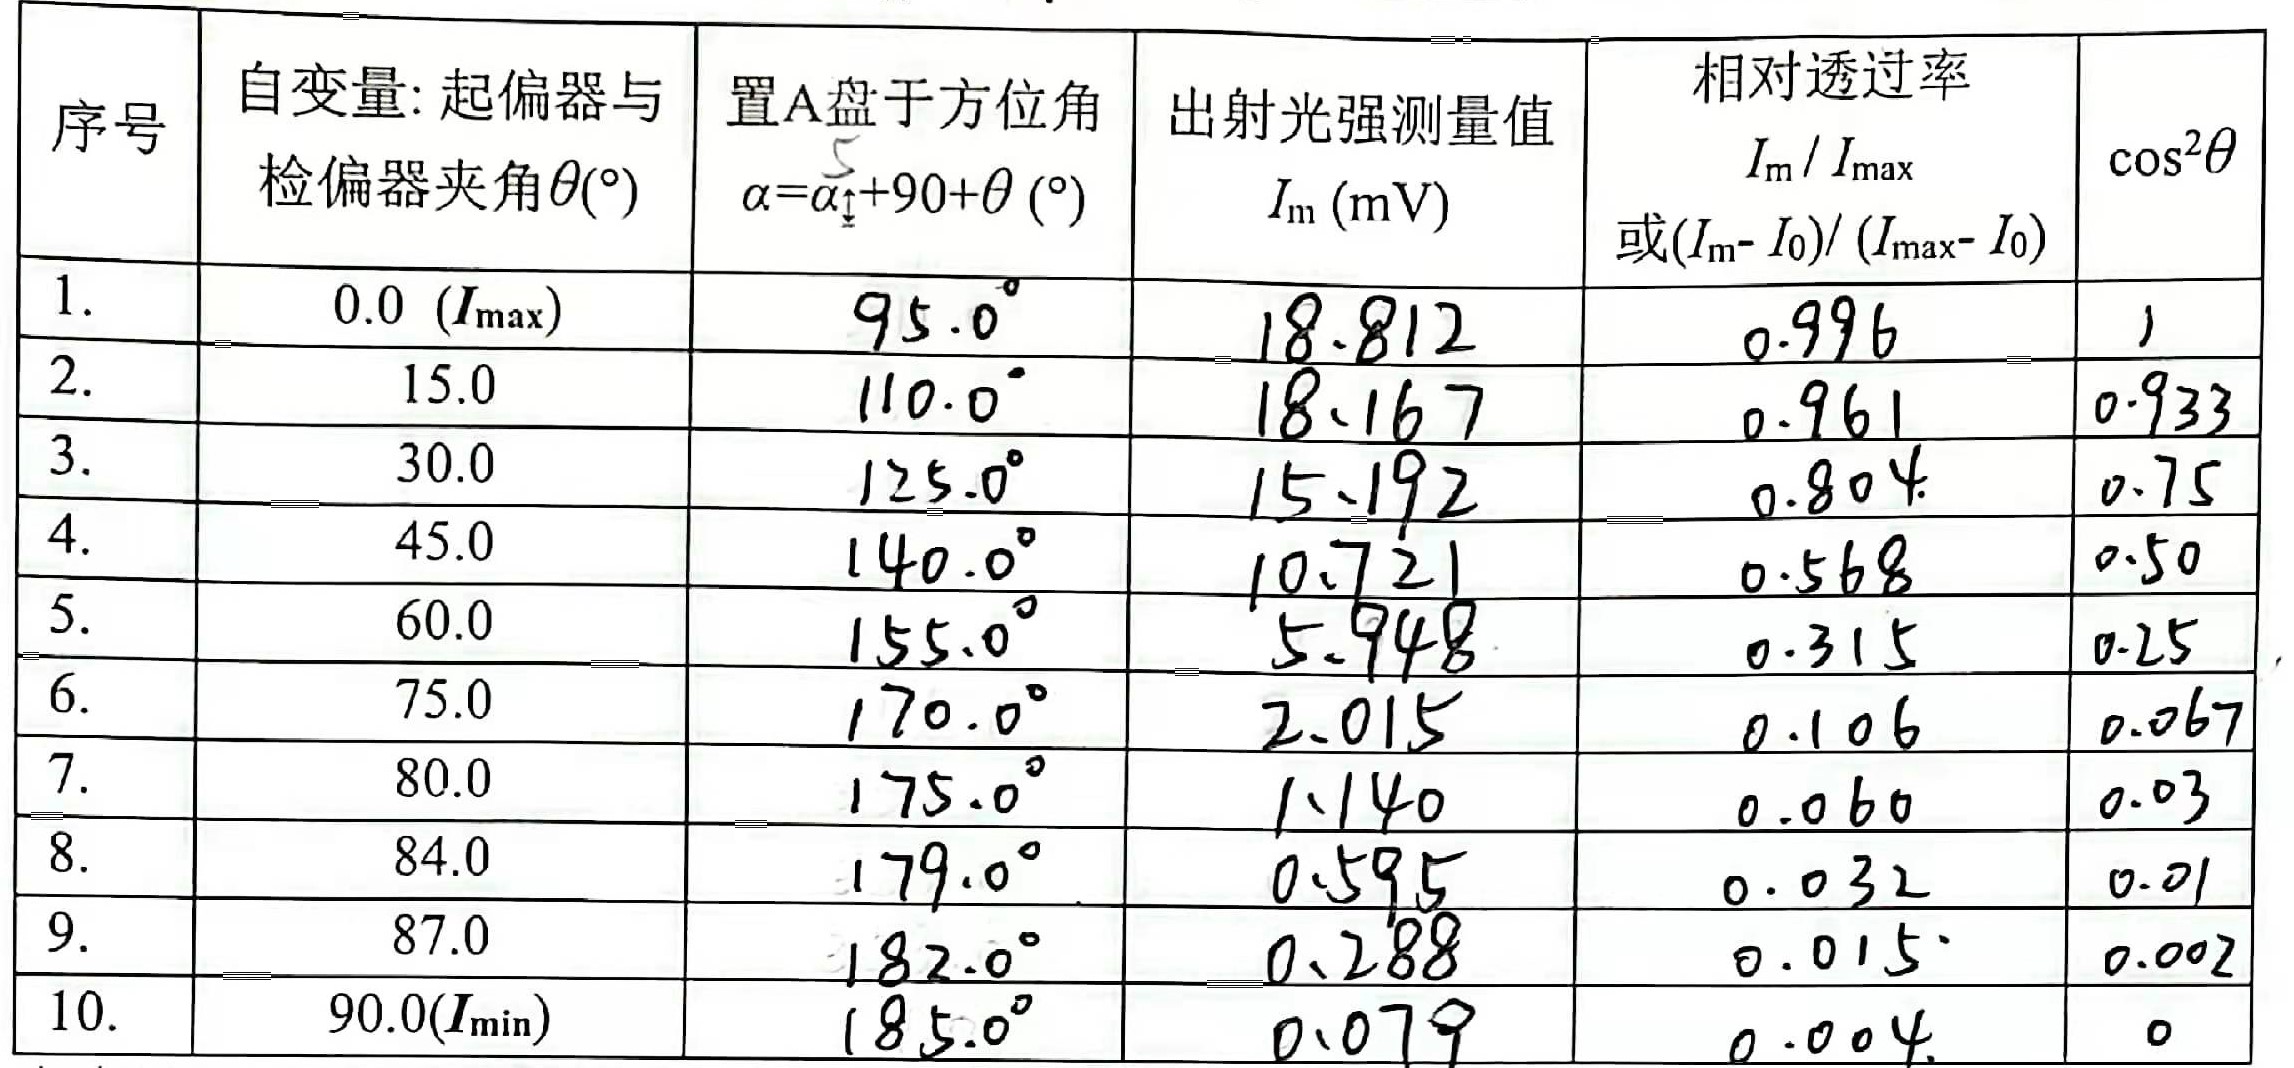 序号 自变量: 起偏器与检偏器夹角θ(°) 置A盘于方位角 5 α=α⊥+90+θ (°) 出射光强测量值 Im (mV) 相对透过率 Im / Imax 或(Im- I0)/ (Imax- I0) cos²θ
1. 0.0 (Imax) 95.0° 18.812 0.996 1
2. 15.0 110.0° 18.167 0.961 0.933
3. 30.0 125.0° 15.192 0.804. 0.75
4. 45.0 140.0° 10.721 0.568 0.50
5. 60.0 155.0° 5.948 0.315 0.25
6. 75.0 170.0° 2.015 0.106 0.067
7. 80.0 175.0° 1.140 0.060 0.03
8. 84.0 179.0° 0.595 0.032 0.01
9. 87.0 182.0° 0.288 0.015. 0.002
10. 90.0(Imin) 185.0° 0.079 0.004. 0